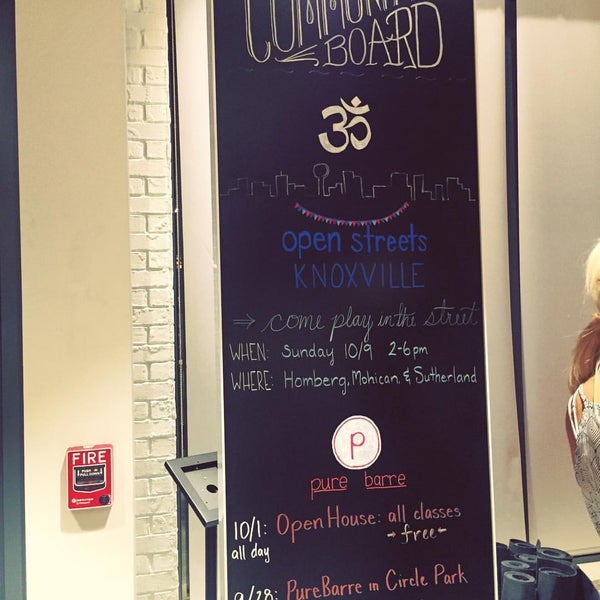 COMMUNITY
BOARD
ॐ
open streets
KNOXVILLE
⇒ come play in the street
WHEN: Sunday 10/9 2-6pm
WHERE: Homberg, Mohican, & Sutherland
p
pure barre
10/1: Open House: all classes
all day → free ←
9/28: Pure Barre in Circle Park
FIRE
PUSH
PULL DOWN